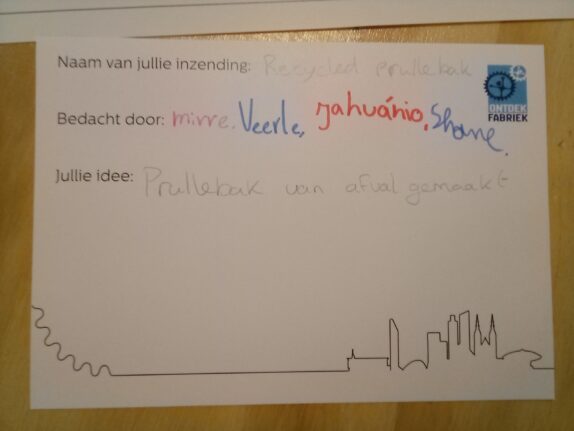 Naam van jullie inzending: Recycled prullebak
Bedacht door: mirre. Veerle, Jahuánio, Shane.
ONTDEK
FABRIEK
Jullie idee: Prullebak van afval gemaakt